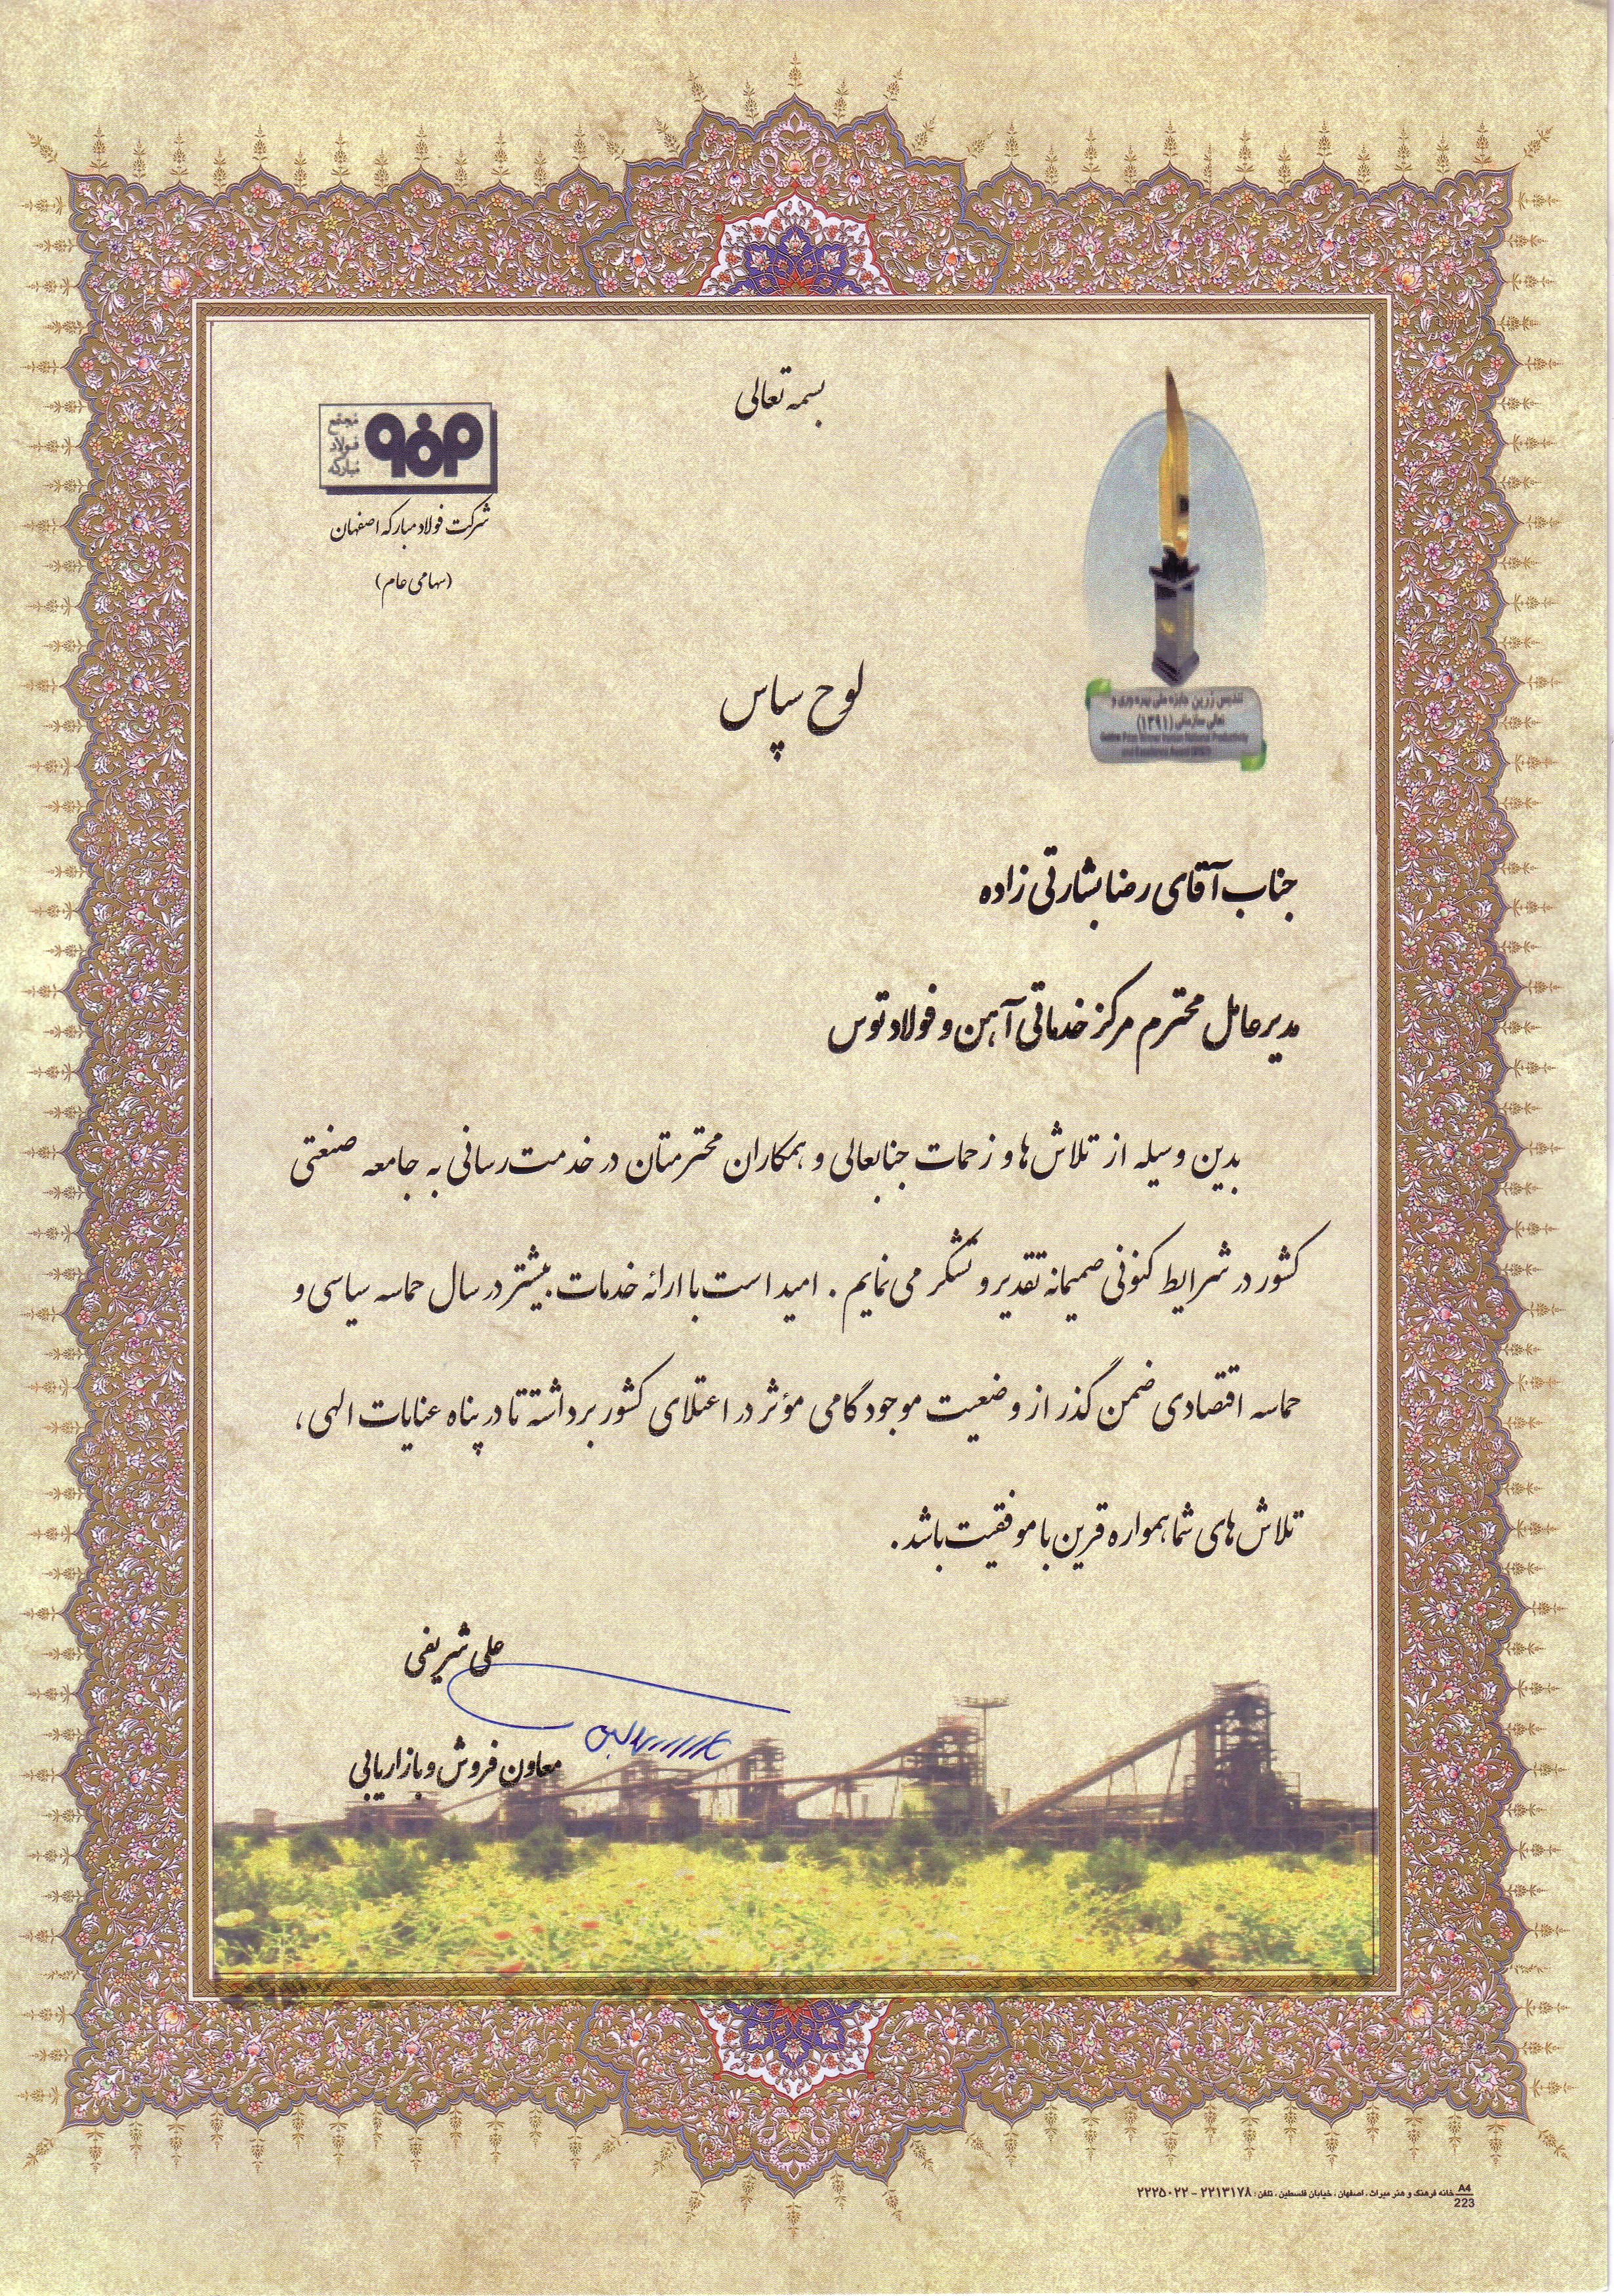 بسمه تعالی
مجتمع
فولاد
مبارکه
شرکت فولاد مبارکه اصفهان
(سهامی عام)
تندیس زرین جایزه ملی بهره وری و
تعالی سازمانی (۱۳۹۱)
لوح سپاس
جناب آقای رضا بشارتی زاده
مدیر عامل محترم مرکز خدماتی آهن و فولاد توس
بدین وسیله از تلاش ها و زحمات جنابعالی و همکاران محترمتان در خدمت رسانی به جامعه صنعتی
کشور در شرایط کنونی صمیمانه تقدیر و تشکر می نمایم . امید است با ارائه خدمات بیشتر در سال حماسه سیاسی و
حماسه اقتصادی ضمن گذر از وضعیت موجود گامی مؤثر در اعتلای کشور برداشته تا در پناه عنایات الهی ،
تلاش های شما همواره قرین با موفقیت باشد .
علی شریفی
معاون فروش و بازاریابی
A4
223
خانه فرهنگ و هنر میراث ، اصفهان ، خیابان فلسطین ، تلفن : ۲۲۱۳۱۷۸ - ۲۲۲۵۰۲۲